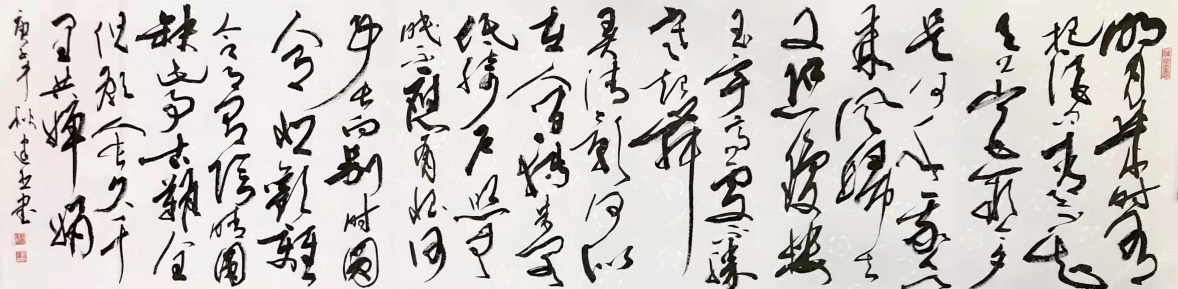 明月幾时有
把酒问青天不知
天上宫阙今夕
是何年我欲
乘风歸去
又恐瓊楼
玉宇高處不勝
寒起舞
弄清影何似
在人间轉朱阁
低绮户照无
眠不應有恨何
事长向别时圆
人有悲歡離
合月有阴晴圆
缺此事古難全
但願人长久千
里共婵娟
年秋 书